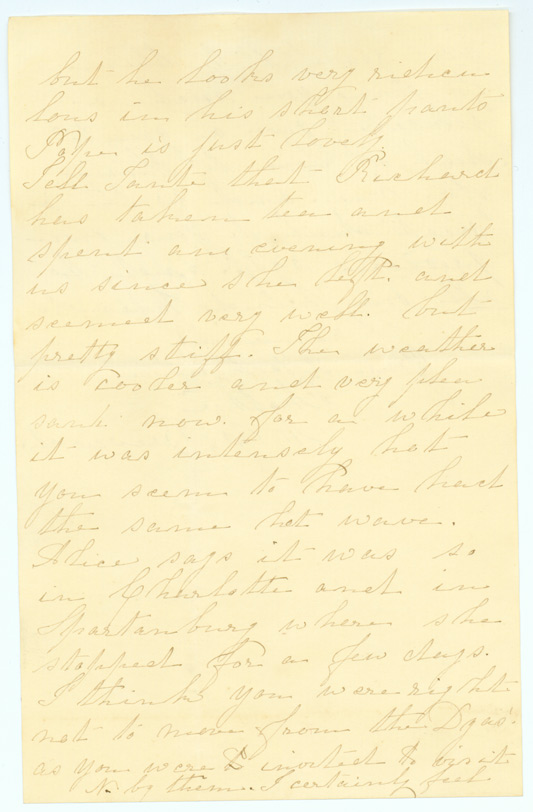 but he looks very ridicu
lous in his short pants
Pape is just lovely.
Tell Tante that Richard
has taken tea and
spent an evening with
us since she left. and
seemed very well. but
pretty stiff. The weather
is cooler and very plea
sant now. for a while
it was intensely hot
you seem to have had
the same hot wave.
Alice says it was so
in Charlotte and in
Spartanburg where she
stopped for a few days.
I think you were right
not to move from the
as you were invited to visit
by them. I certainly feel